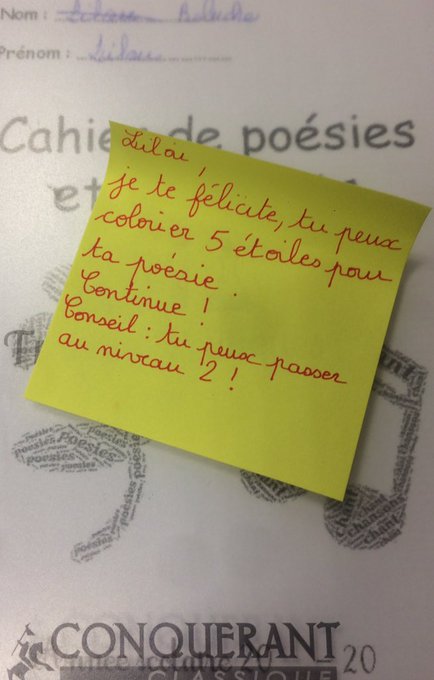 Nom :
Prénom :
Cahier de poésies
et
Lilou,
je te félicite, tu peux
colorier 5 étoiles pour
ta poésie.
Continue !
Conseil : tu peux passer
au niveau 2 !
poésies
CONQUERANT
année scolaire 20 20
CLASSIQUE